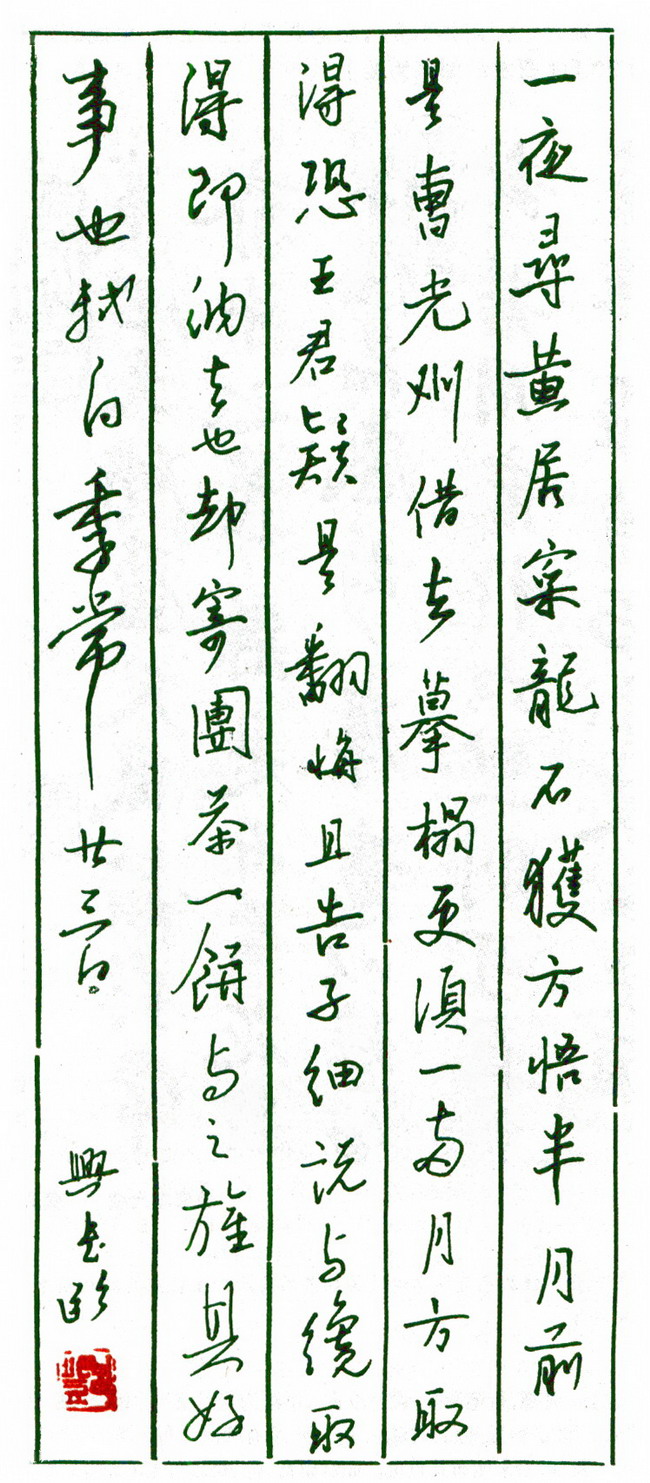 一夜尋黄居寀龍不獲方悟半月前
是曹光州借去摹榻更須一兩月方取
得恐王君疑是翻悔且告子細説与纔取
得即納去也却寄團茶一餅与之旌其好
事也軾白季常廿三日 興